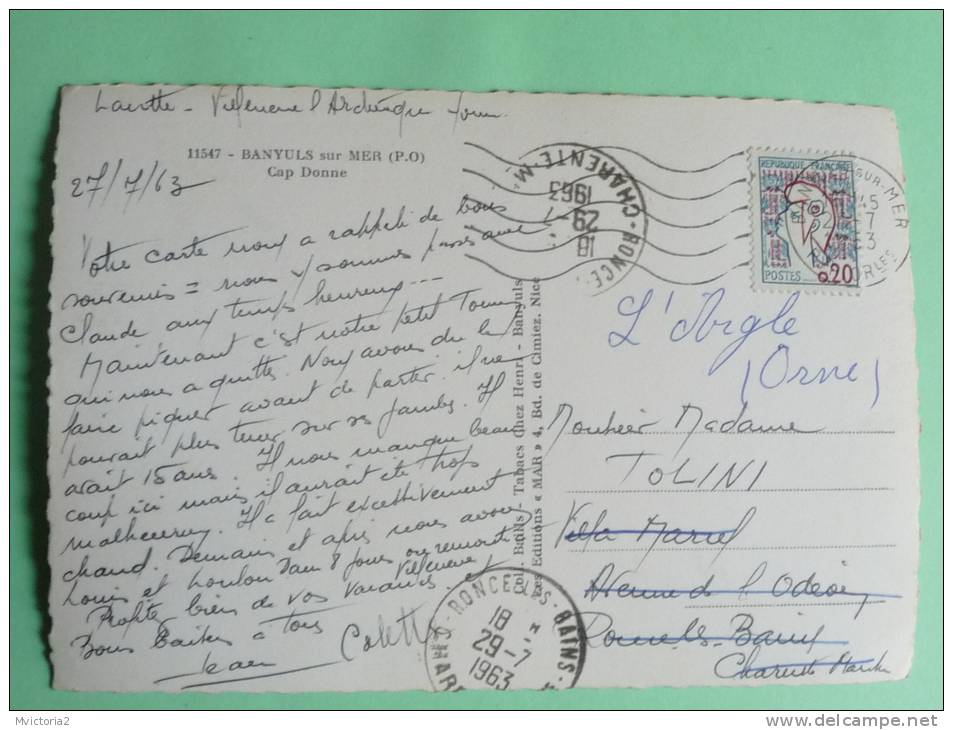 Villeneuve l'Archevêque Yonne
11547 - BANYULS sur MER (P.O)
Cap Donne
27/7/63
Votre carte nous a rappelé de bons
souvenirs = nous y sommes passés avec
Claude aux temps heureux...
Maintenant c'est notre petit Tom
qui nous a quittés. Nous avons dû le
faire piquer avant de partir, il ne
pouvait plus tenir sur ses jambes. Il
avait 15 ans. Il nous manque beau
coup ici mais il aurait été trop
malheureux. Il a fait excessivement
chaud. Demain et après nous avons
Louis et Loulou. Dans 8 jours on remonte
Villeneuve
Profitez bien de vos vacances et
Bons baisers à Tous
Jean Colette
Tabacs chez Henri - Banyuls
Les Editions « MAR » 4, Bd. de Cimiez. Nice
REPUBLIQUE FRANÇAISE
POSTES
0,20
SUR-MER
CHARENTE-M
RONCE
18
29-
1963
L'Aigle
(Orne)
Monsieur Madame
TOLINI
Villa Marcel
Avenue de l'Odéon
Ronce les Bains
Charente Marit
RONCE LES BAINS
18
29-7
1963
Mvictoria2
delcampe.net